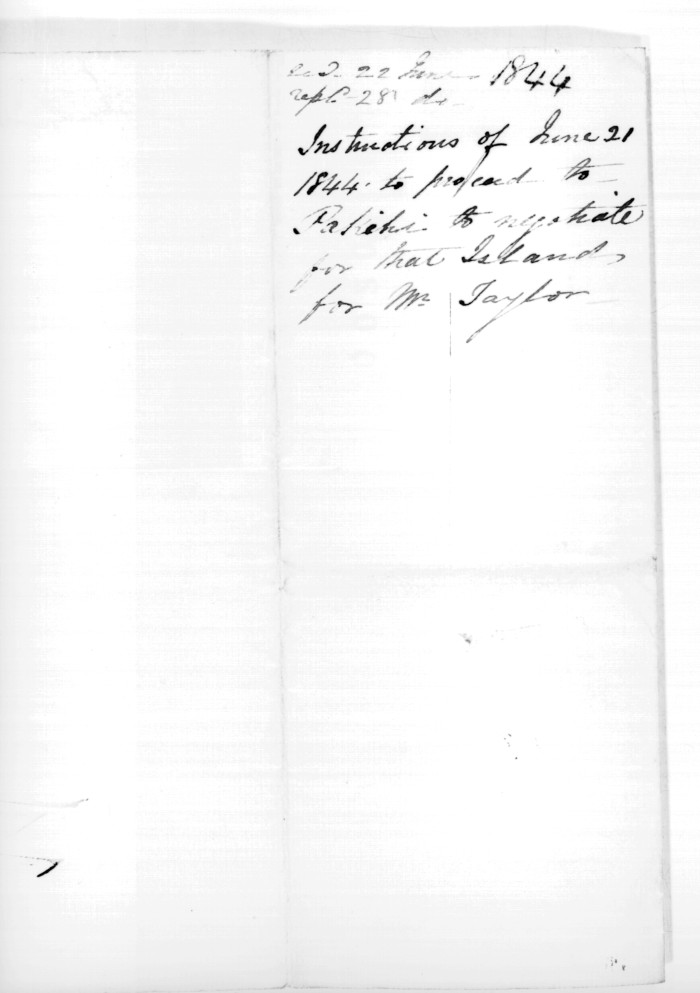 recd. 22 June 1844
repd. 28 do.
Instructions of June 21
1844 to proceed to
Pakihi to negotiate
for that Island
for Mr Taylor